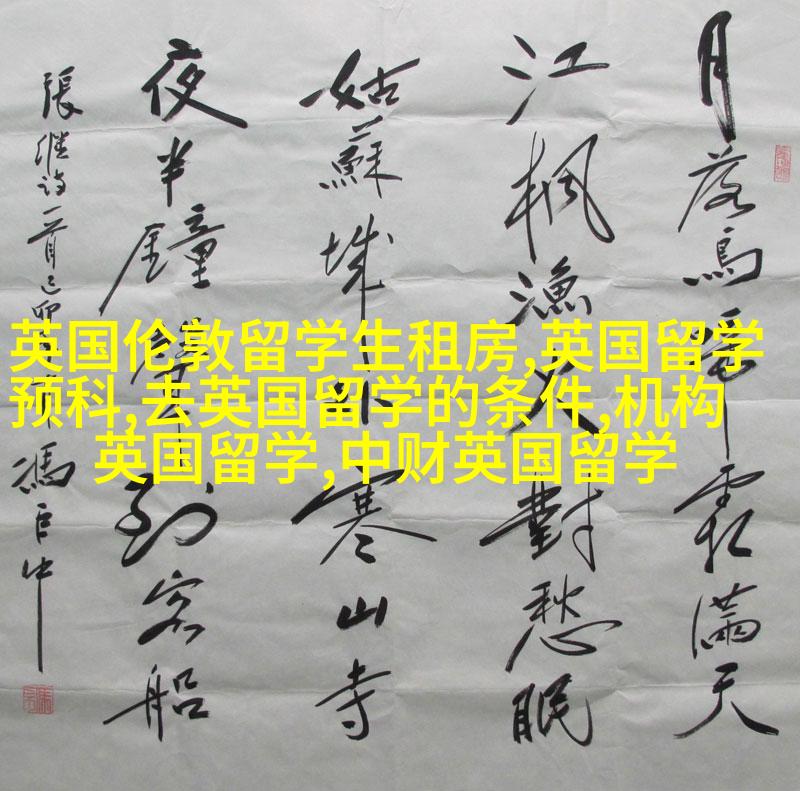 月落烏啼霜滿天
江楓漁火對愁眠
姑蘇城外寒山寺
夜半鐘聲到客船
張繼詩一首己卯 馮巨中
英国伦敦留学生租房,英国留学
预科,去英国留学的条件,机构
英国留学,中财英国留学